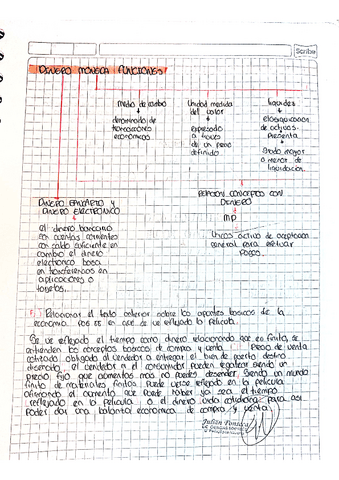 Scribe
DINERO MONEDA FUNCIONES
Medio de cambio
denominado de
transacciones
economicas
Unidad medida
del valor
expresado
a traves
de un peso
definido
liquides
el
de activos.
Presenta
Grado mayor
o menor de
liquidacion.
DINERO BANCARIO Y
DINERO ELECTRONICO
el dinero bancario
son cuentas corrientes
con saldo suficiente en
cambio el dinero
electronico basa
en transferencias en
aplicaciones o
tarjetas.
RELACION CONCEPTO CON
DINERO
MP
Unicos activo de aceptacion
general para efectuar
pagos.
Relacionar el texto anterior sobre los aportes basicos de la
economia en que se ve reflejado la pelicula.
Se ve reflejado el tiempo como dinero relacionando que es finito, se
entienden los conceptos basicos de compra y venta. Precio de venta
obligado al vendedor a entregar el bien de puerto destino
el vendedor a el consumidor pueden siendo un
precio fijo que aumentos mas no puedes descender siendo un mundo
finito de materiales finitos puede verse reflejado en la pelicula
el aumento que puede haber ya sea el tiempo
reflejado en la pelicula o el dinero vida cotidiana para asi
poder dar una balanza economica de compra y venta.
Julian Fonseca